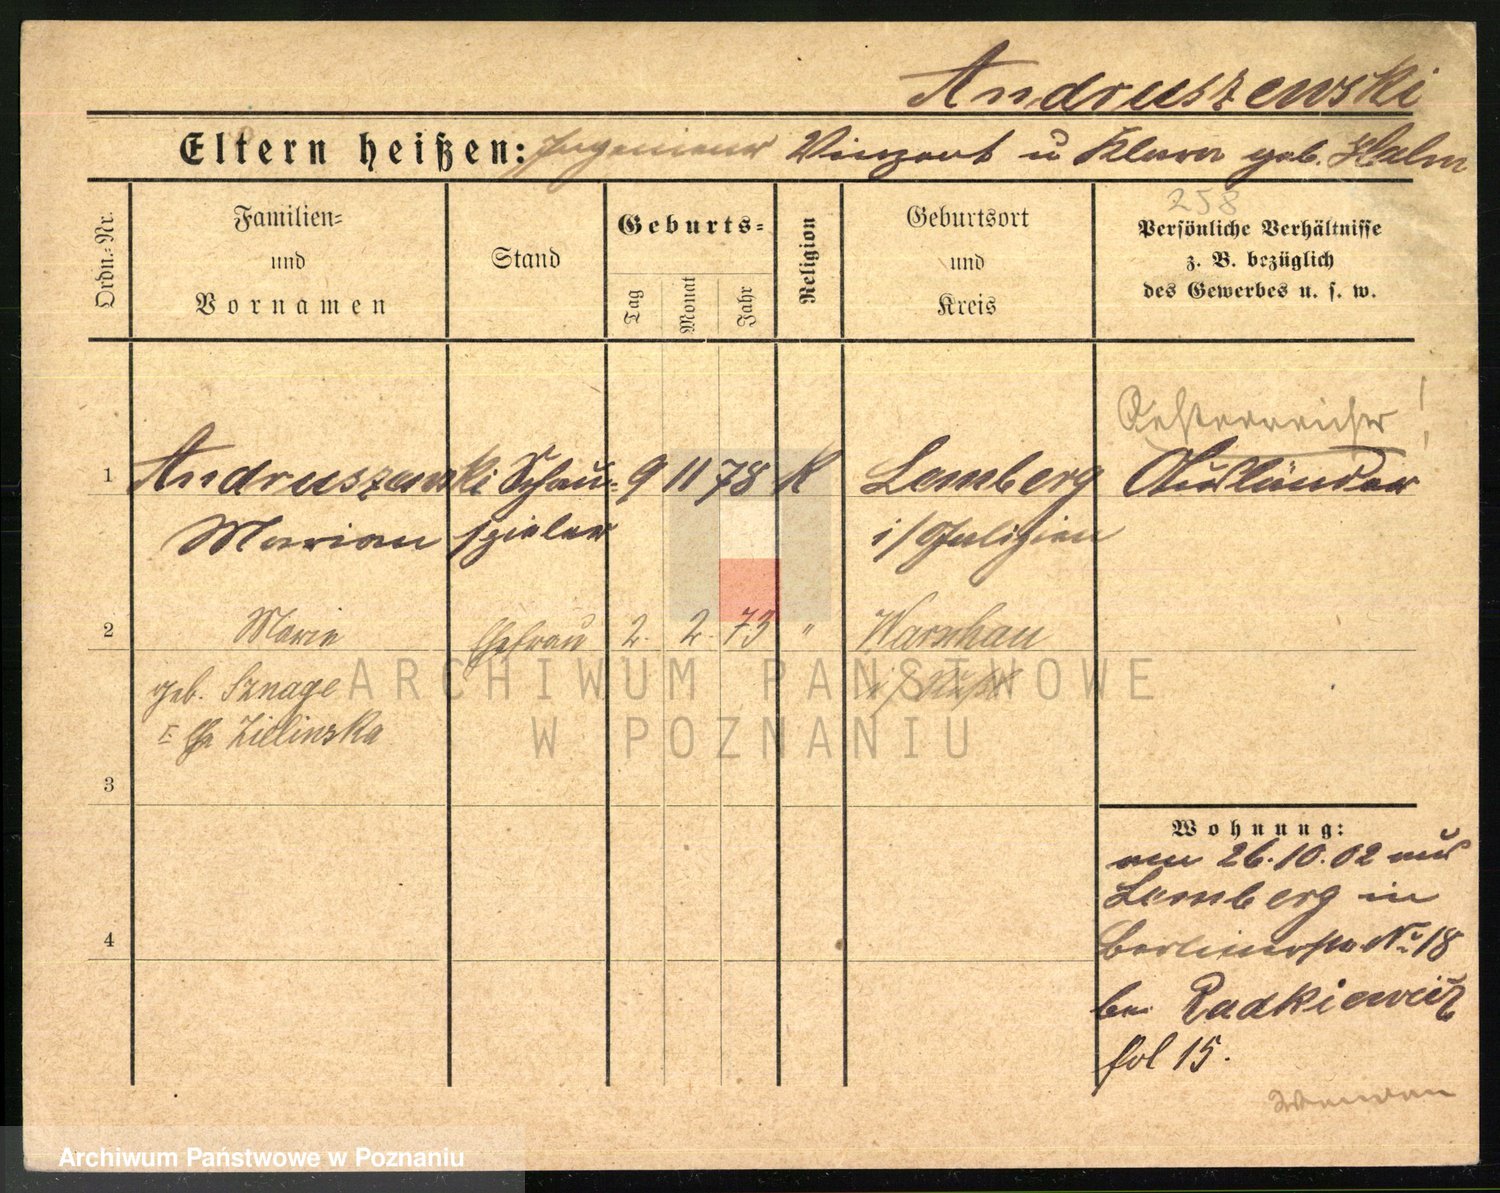 Andruszewski
Eltern heißen: Ingenieur Vinzent u Klara geb. Halm
258
Ordn.-Nr.
Familien-
und
Vornamen
Stand
Geburts-
Tag
Monat
Jahr
Religion
Geburtsort
und
Kreis
Persönliche Verhältnisse
z. B. bezüglich
des Gewerbes u. s. w.
Oesterreicher!
1 Andruszewski Schau- 9 11 78 K Lemberg Ausländer
Marian spieler i/Galizien
2 Marie Ehefrau 2. 2. 73 " Warschau
geb. Sznage i/Russl
I Ehe Zielinska
3
4
Wohnung:
am 26.10.02 aus
Lemberg in
Berlinerstr Nr 18
bei Radkiewicz
fol 15.
Wenden
ARCHIWUM PAŃSTWOWE
W POZNANIU
Archiwum Państwowe w Poznaniu